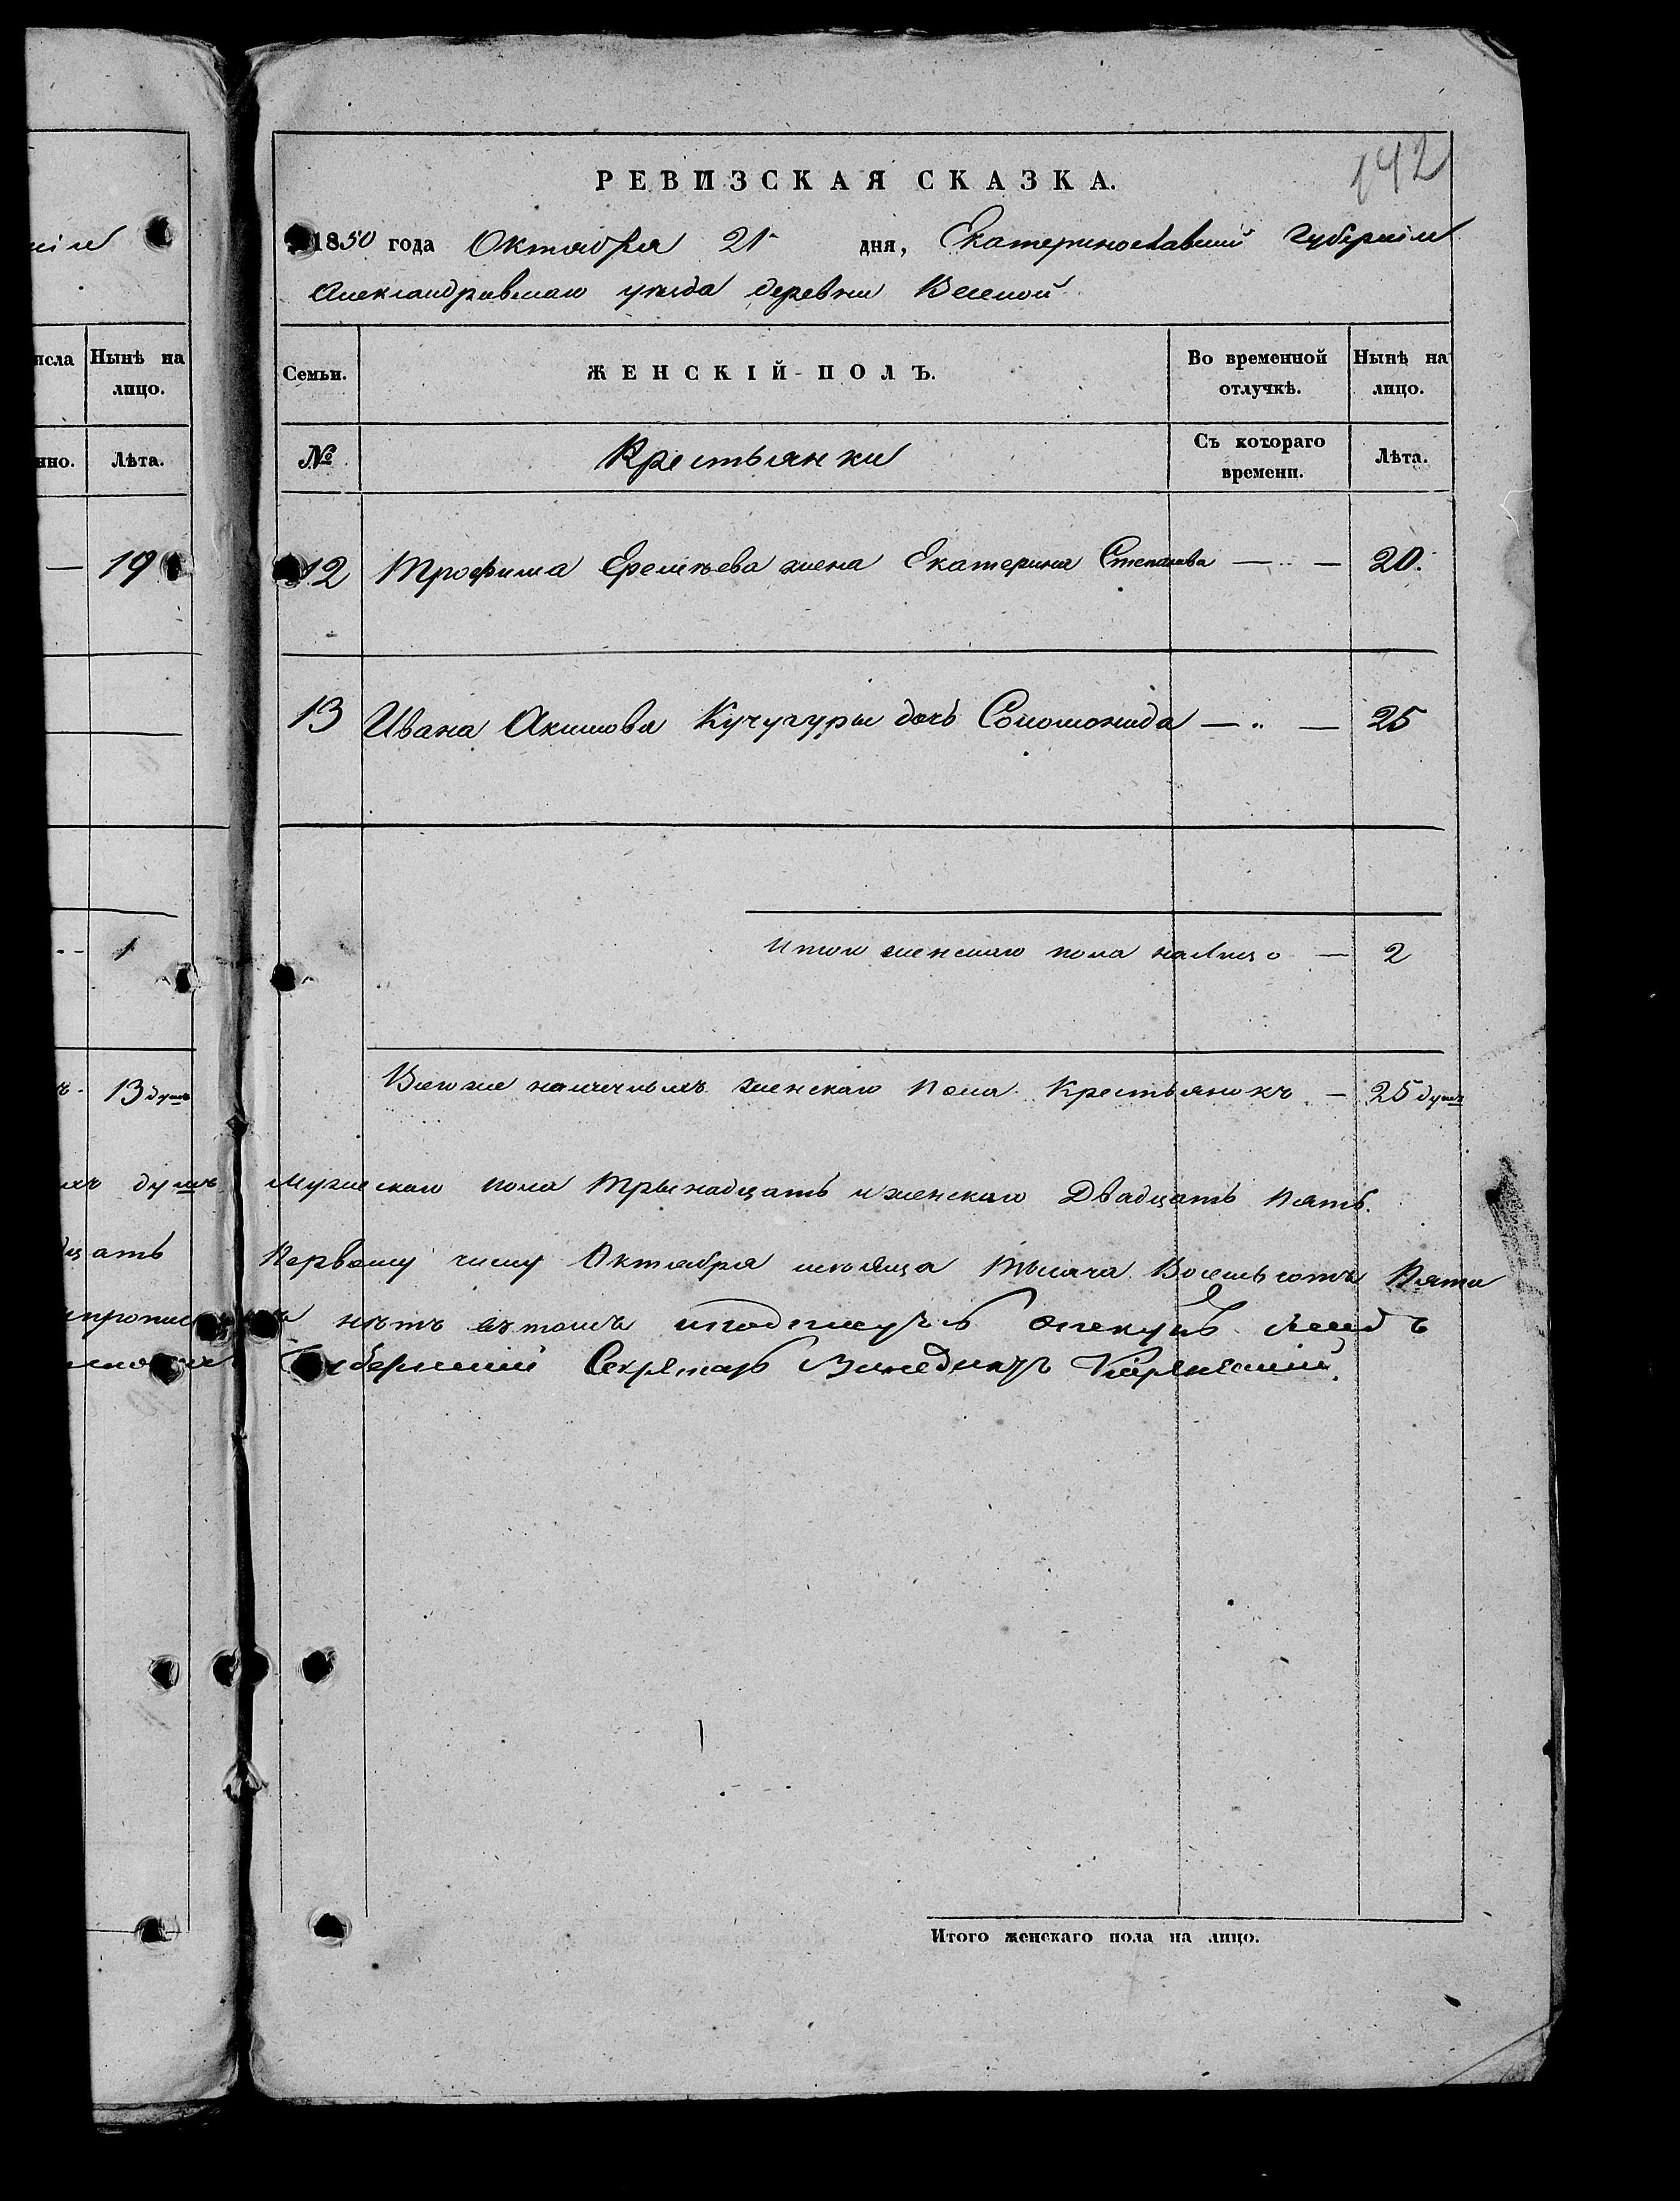 142
РЕВИЗСКАЯ СКАЗКА.
1850 года Октября 21 дня, Екатеринославской Губерніи
Александровскаго уѣзда деревни Веселой
исла Нынѣ на лицо.
Семьи. ЖЕНСКІЙ ПОЛЪ. Во временной отлучкѣ. Нынѣ на лицо.
нно. Лѣта.
№ Крестьянки Съ котораго времени. Лѣта.
— 19
12 Трофима Еремѣева жена Екатерина Степанова — „ — 20.
13 Ивана Акимова Кучугуры дочь Соломонида — „ — 25
1
Итого женскаго пола на Лицо — 2
ъ. 13 душъ
Всего же наличныхъ женскаго Пола Крестьянокъ — 25 душъ
душъ Мужескаго пола Трынадцать и женскаго Двадцать Пять.
цать Первому числу Октября мѣсяца Тысяча Восемьсотъ Пяти
нѣтъ въ томъ
Губернскій Секретарь
Итого женскаго пола на лицо.